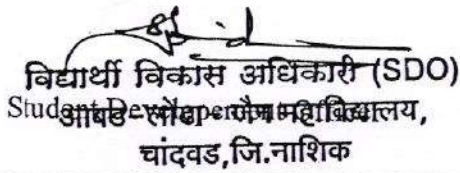 विद्यार्थी विकास अधिकारी (SDO)
Student Development Officer
आबड-लोढा-जैन महाविद्यालय,
चांदवड,जि.नाशिक